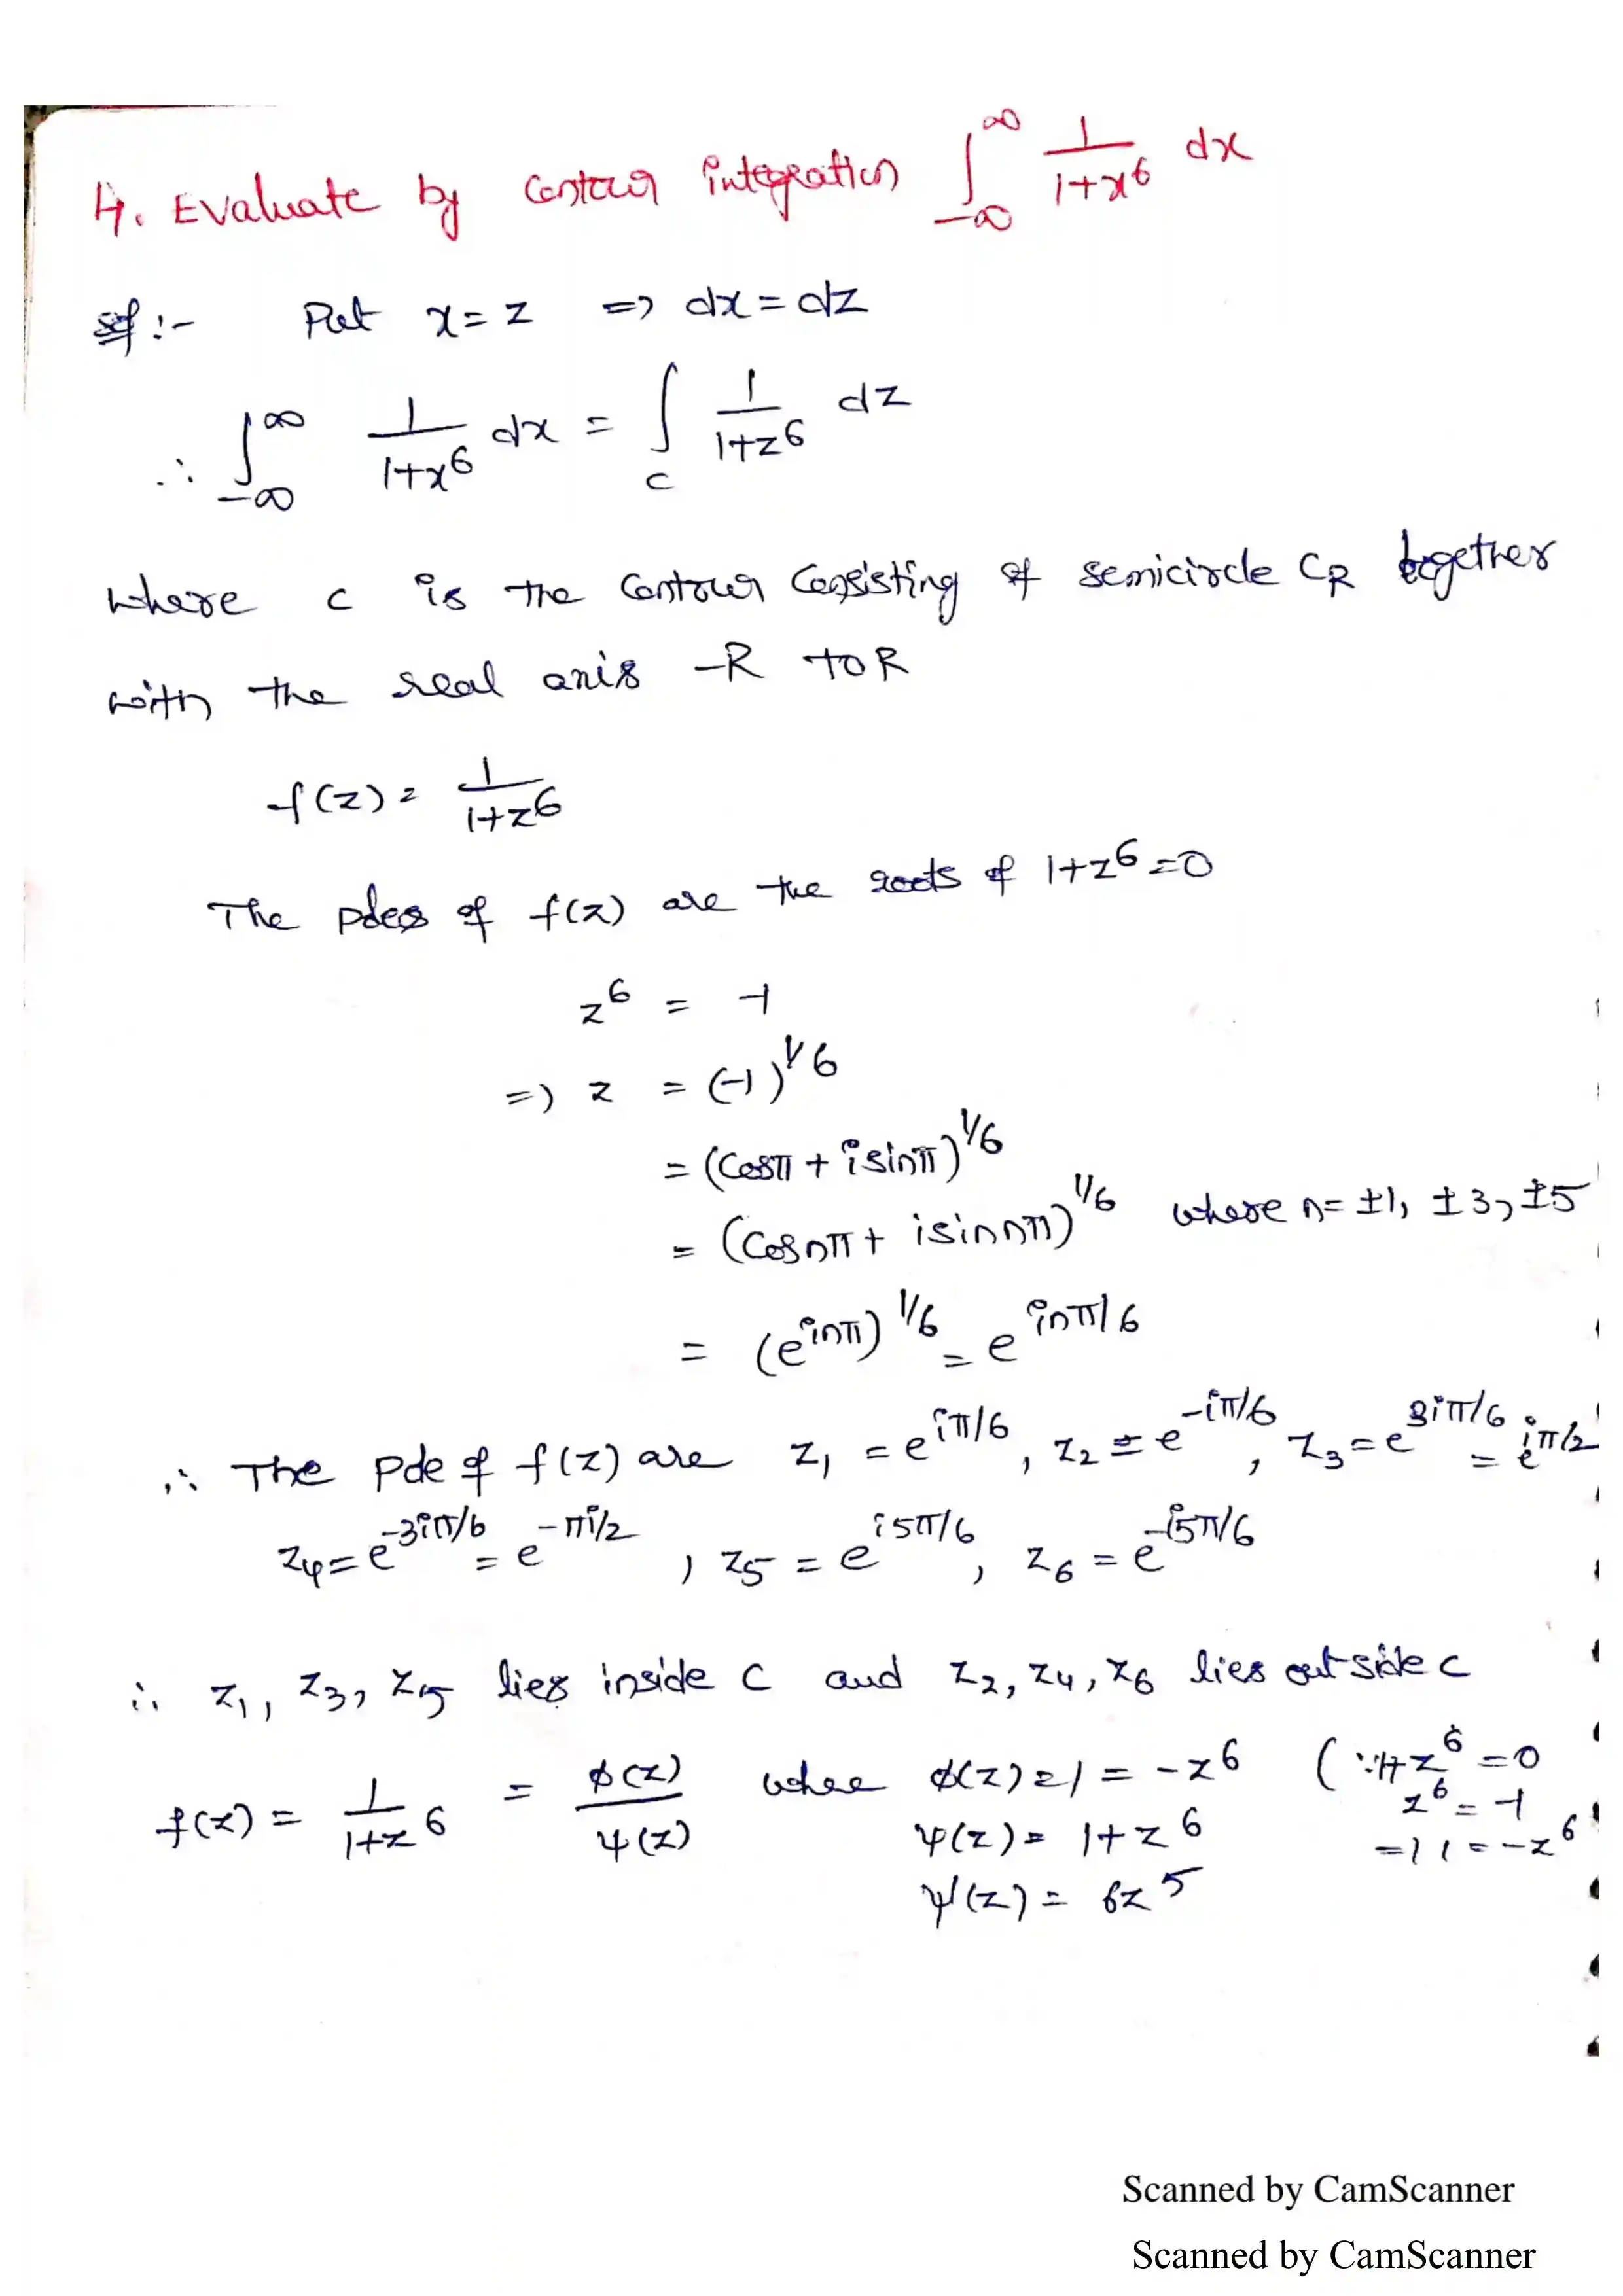 4. Evaluate by contour integration ∫_{-∞}^{∞} 1/(1+x^6) dx
Sol :- Put x = z => dx = dz
∴ ∫_{-∞}^{∞} 1/(1+x^6) dx = ∫_C 1/(1+z^6) dz
where c is the contour consisting of semicircle C_R together
with the real axis -R to R
f(z) = 1/(1+z^6)
The poles of f(z) are the roots of 1+z^6 = 0
z^6 = -1
=) z = (-1)^{1/6}
= (cosπ + i sinπ)^{1/6}
= (cos nπ + i sin nπ)^{1/6} where n = ±1, ±3, ±5
= (e^{inπ})^{1/6} = e^{inπ/6}
∴ The pole of f(z) are z_1 = e^{iπ/6}, z_2 = e^{-iπ/6}, z_3 = e^{3iπ/6} = e^{iπ/2}
z_4 = e^{-3iπ/6} = e^{-πi/2}, z_5 = e^{i5π/6}, z_6 = e^{-i5π/6}
∴ z_1, z_3, z_5 lies inside C and z_2, z_4, z_6 lies outside c
f(z) = 1/(1+z^6) = φ(z)/ψ(z) where φ(z) = 1 = -z^6 (∵ 1+z^6 = 0
z^6 = -1
ψ(z) = 1+z^6 =) 1 = -z^6
ψ'(z) = 6z^5
Scanned by CamScanner
Scanned by CamScanner